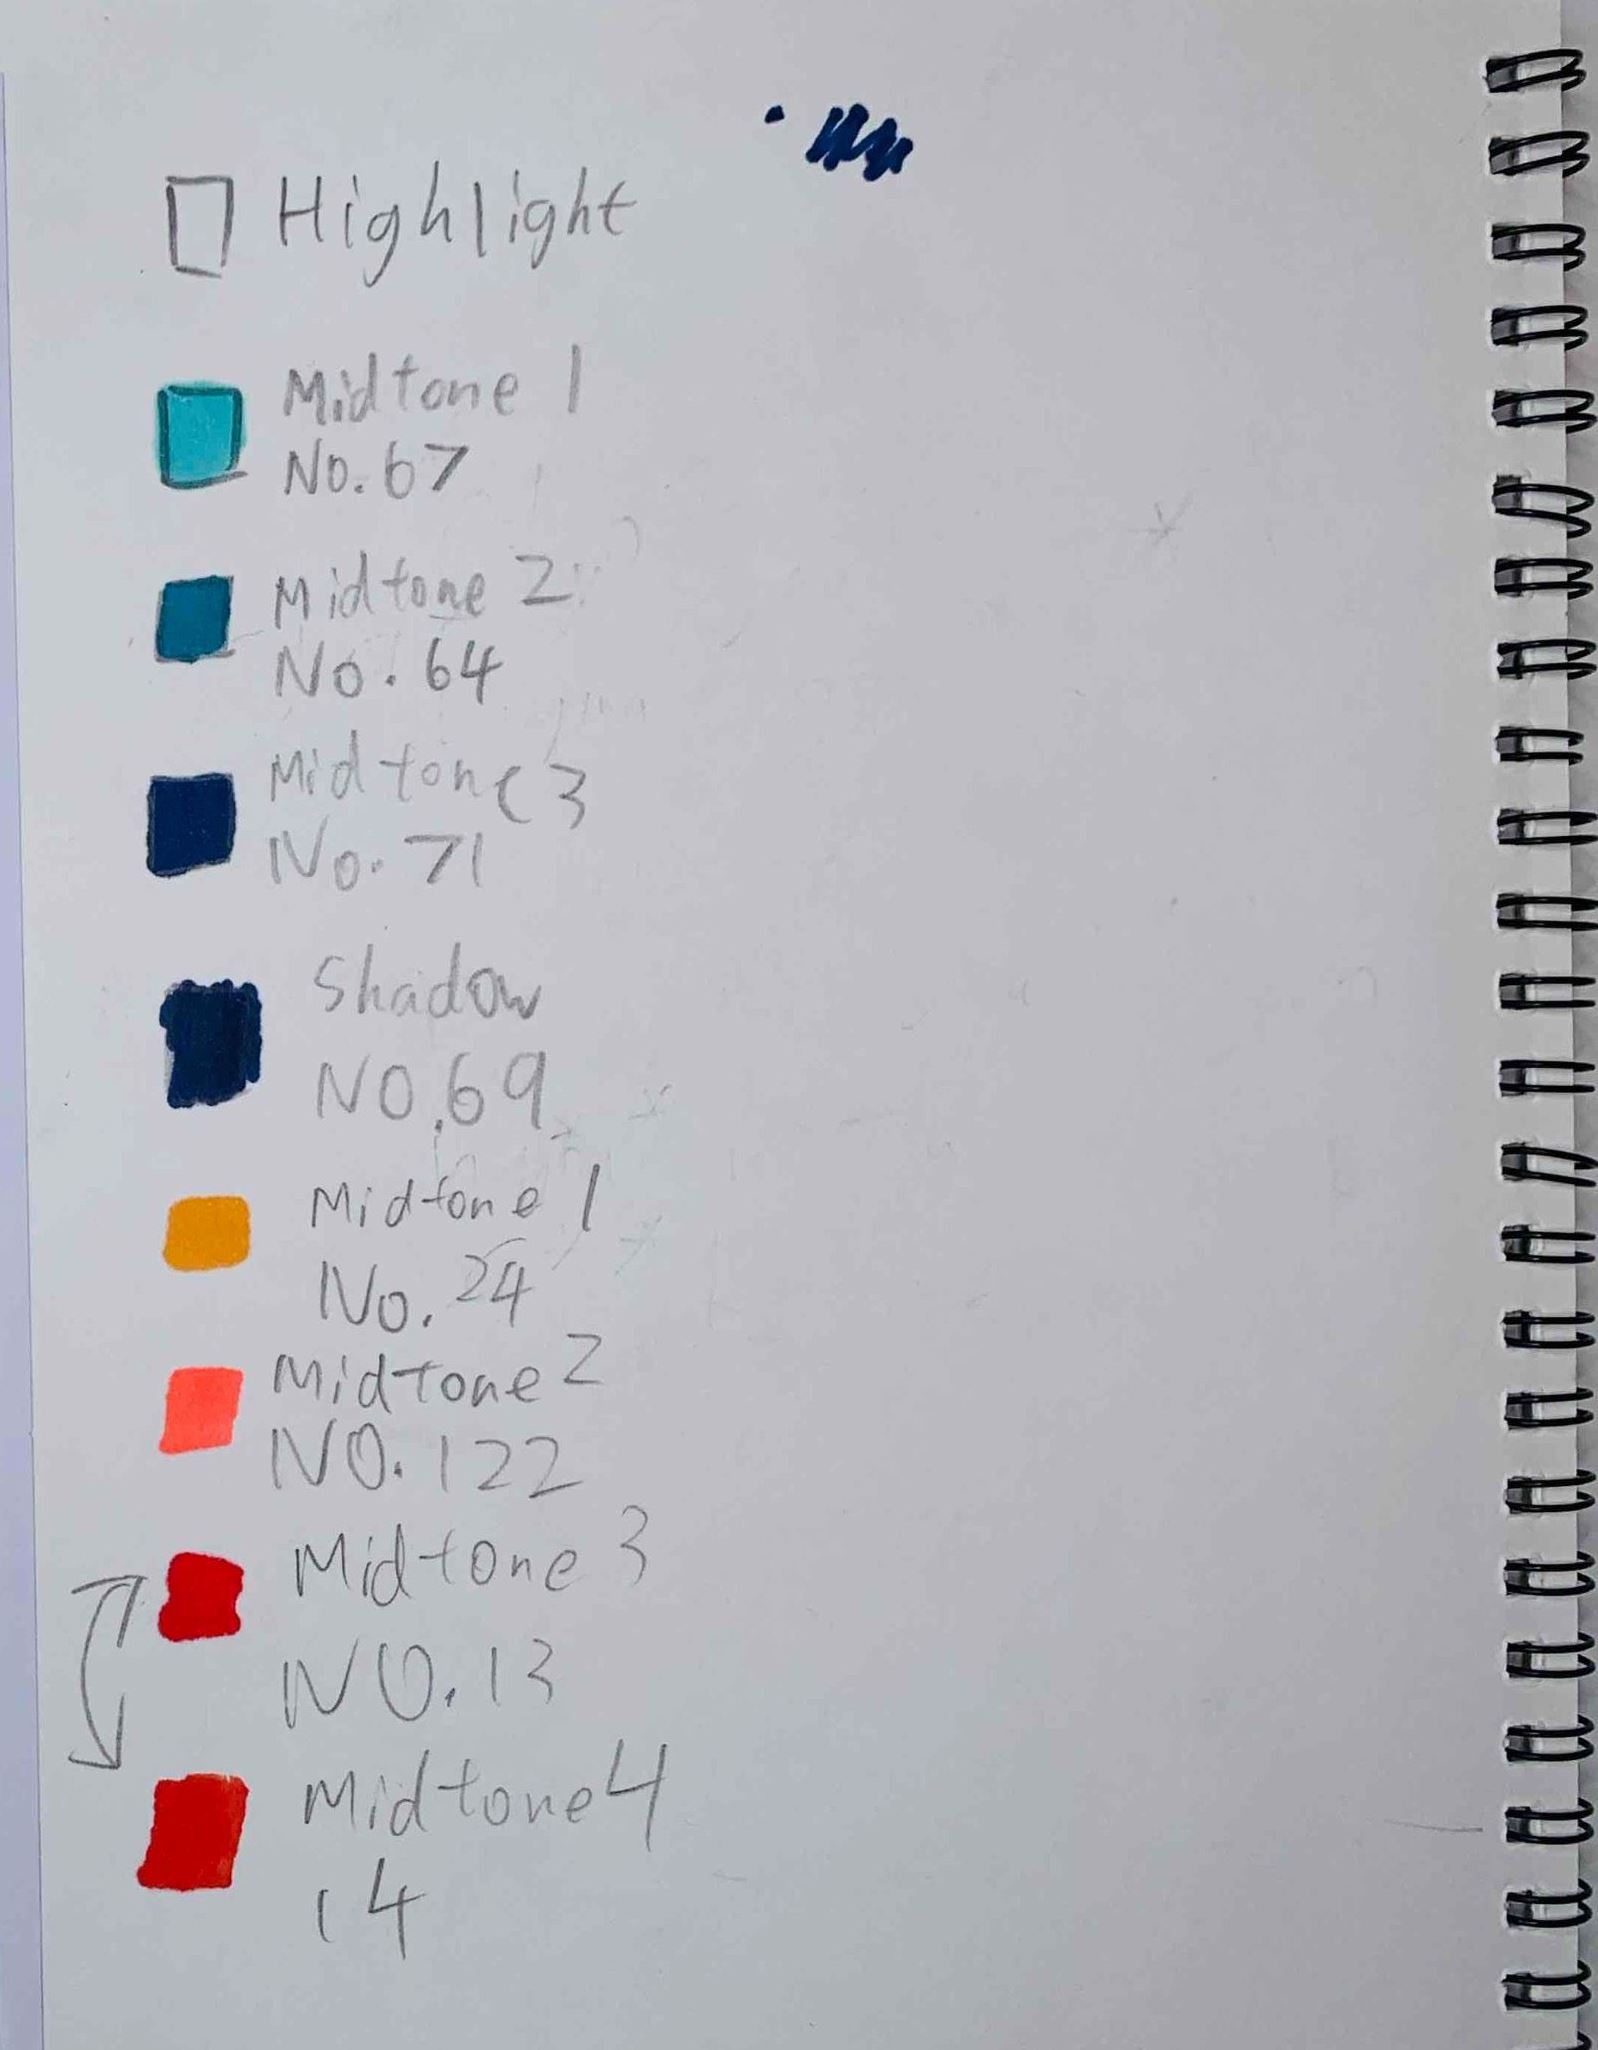 Highlight
Midtone 1
No. 67
Midtone 2
No. 64
Midtone 3
No. 71
Shadow
NO. 69
Midtone 1
No. 24
Midtone 2
NO. 122
Midtone 3
NO. 13
Midtone 4
14